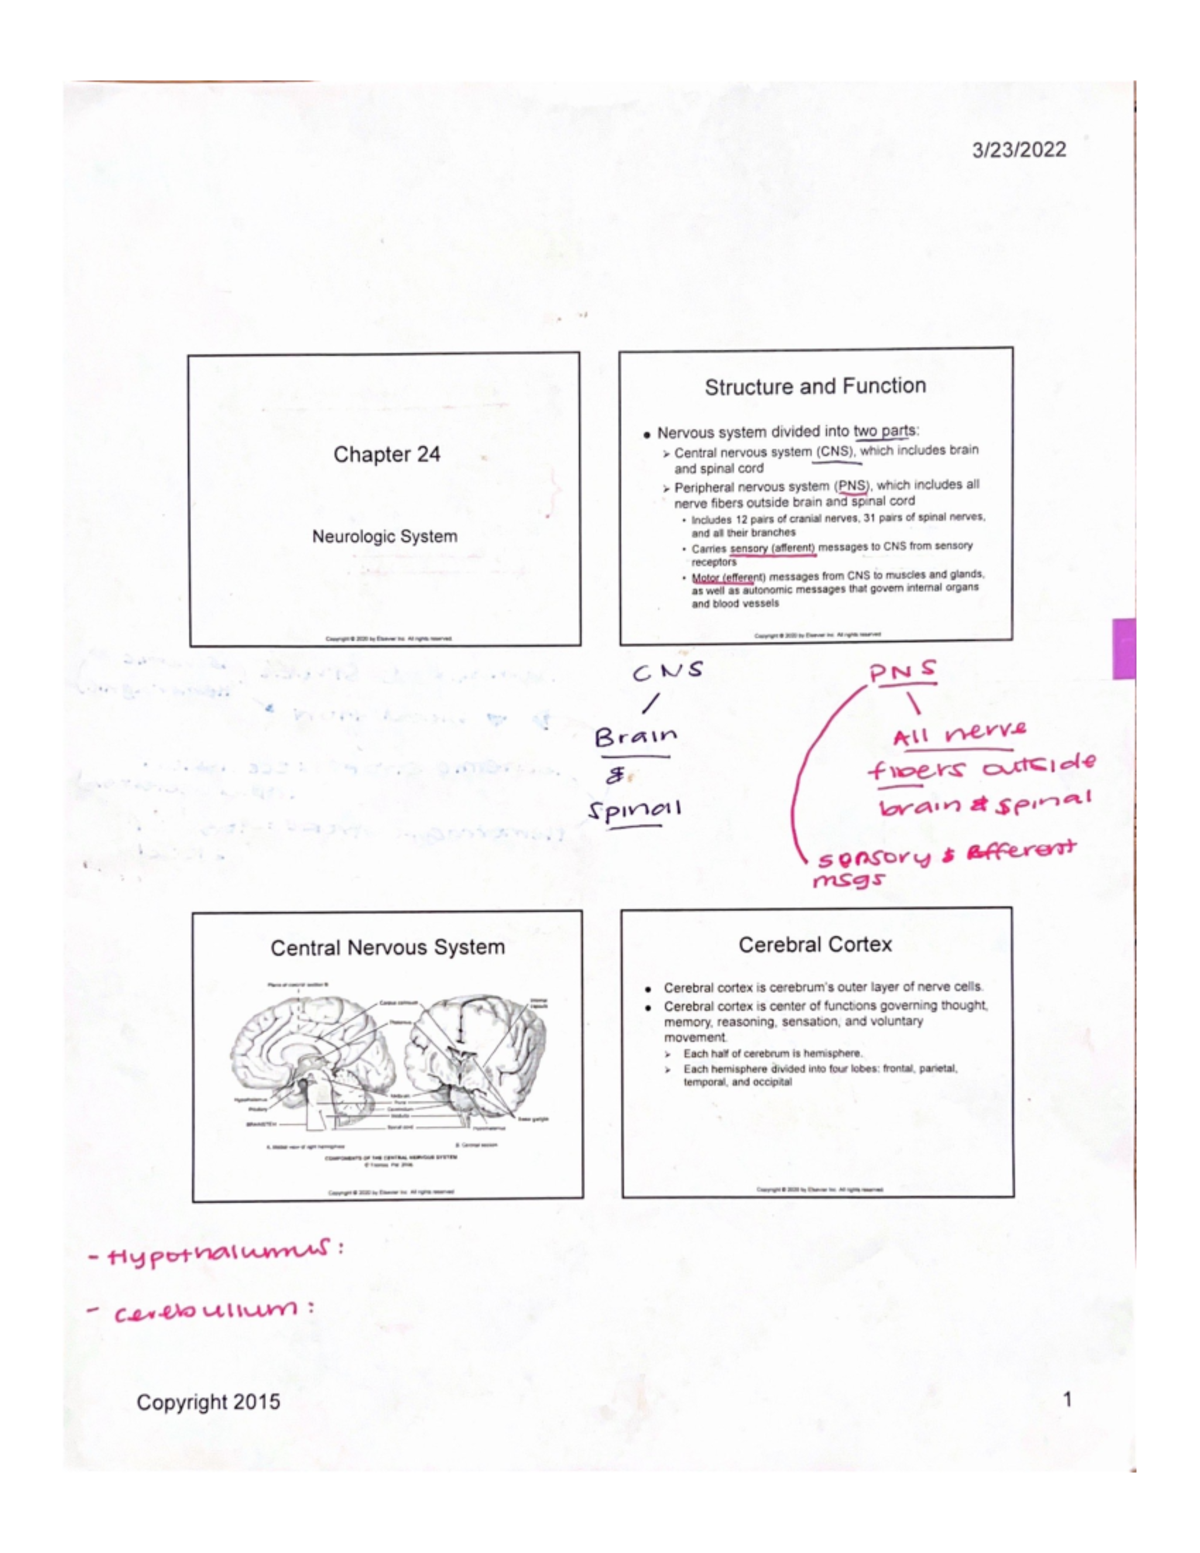 3/23/2022
Chapter 24
Neurologic System
Copyright © 2020 by Elsevier Inc. All rights reserved.
Structure and Function
● Nervous system divided into two parts:
➢ Central nervous system (CNS), which includes brain
and spinal cord
➢ Peripheral nervous system (PNS), which includes all
nerve fibers outside brain and spinal cord
• Includes 12 pairs of cranial nerves, 31 pairs of spinal nerves,
and all their branches
• Carries sensory (afferent) messages to CNS from sensory
receptors
• Motor (efferent) messages from CNS to muscles and glands,
as well as autonomic messages that govern internal organs
and blood vessels
Copyright © 2020 by Elsevier Inc. All rights reserved.
CNS
Brain
&
Spinal
PNS
All nerve
fibers outside
brain & spinal
sensory & efferent
msgs
Central Nervous System
Plane of coronal section B
Corpus callosum
Internal
capsule
Thalamus
Hypothalamus
Pituitary
BRAINSTEM
Midbrain
Pons
Cerebellum
Medulla
Spinal cord
Basal ganglia
Hypothalamus
A. Medial view of right hemisphere
B. Coronal section
COMPONENTS OF THE CENTRAL NERVOUS SYSTEM
Copyright © 2020 by Elsevier Inc. All rights reserved.
Cerebral Cortex
● Cerebral cortex is cerebrum's outer layer of nerve cells.
● Cerebral cortex is center of functions governing thought,
memory, reasoning, sensation, and voluntary
movement.
➢ Each half of cerebrum is hemisphere.
➢ Each hemisphere divided into four lobes: frontal, parietal,
temporal, and occipital
Copyright © 2020 by Elsevier Inc. All rights reserved.
- Hypothalumus:
- cerebullum:
Copyright 2015
1